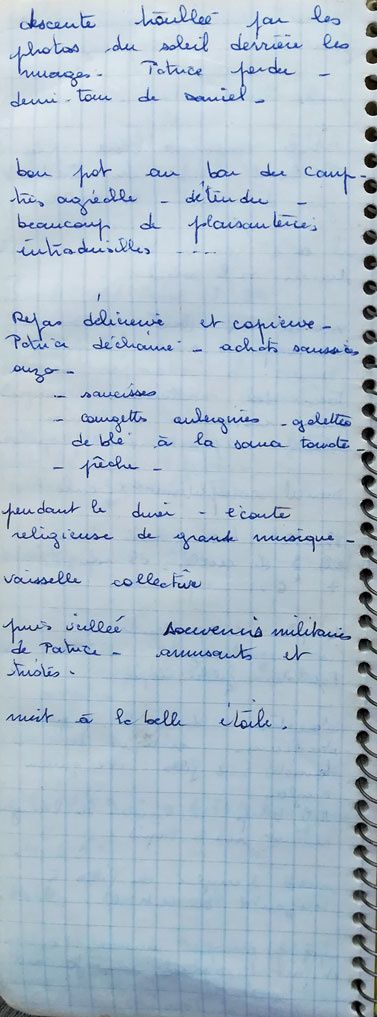 descente troublée par les
photos du soleil derrière les
nuages - Patrice perdu -
demi-tour de daniel -
bon pot au bar du camp -
très agréable - détendu -
beaucoup de plaisanteries
intraduisibles ....
Repas délicieux et copieux -
Patrice déchaîné - achats saucisses
ouzo -
- saucisses
- courgettes aubergines - galettes
de blé à la sauce tomate -
- pêche -
pendant le diner - écoute
religieuse de grande musique -
vaisselle collective
puis veillée souvenirs militaires
de Patrice - amusants et
tristes -
nuit à la belle étoile.